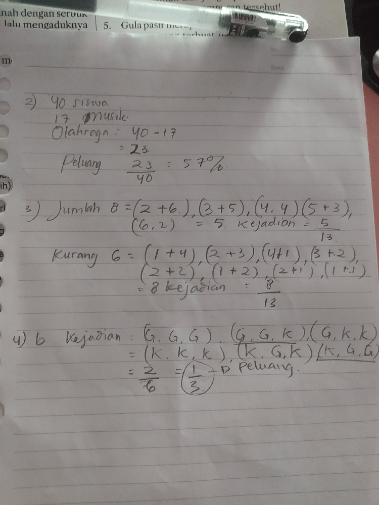 nah dengan serbuk
lalu mengaduknya
5. Gula pasir
tersebut!
2) 40 siswa
17 Musik
Olahraga : 40 - 17
= 23
Peluang 23/40 = 57%
3) Jumlah 8 = (2 + 6), (3 + 5), (4, 4) (5 + 3),
(6, 2) = 5 Kejadian = 5/13
Kurang 6 = (1 + 4), (2 + 3), (4+1), (3 + 2),
(2 + 2), (1 + 2), (2 + 1), (1 + 1)
= 8 Kejadian = 8/13
4) 6 Kejadian : (G, G, G), (G, G, K), (G, K, K)
= (K, K, K), (K, G, K) (K, G, G)
= 2/6 = 1/3 → Peluang.